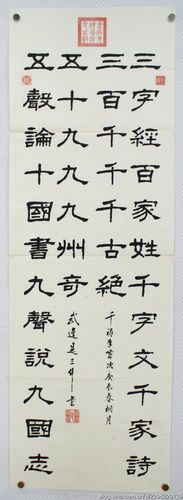 三字經百家姓千字文千家詩
三百千千千古絕
千禧年歲次庚辰春桐月
五十九九九州奇
武進
五聲論十國書九聲說九國志